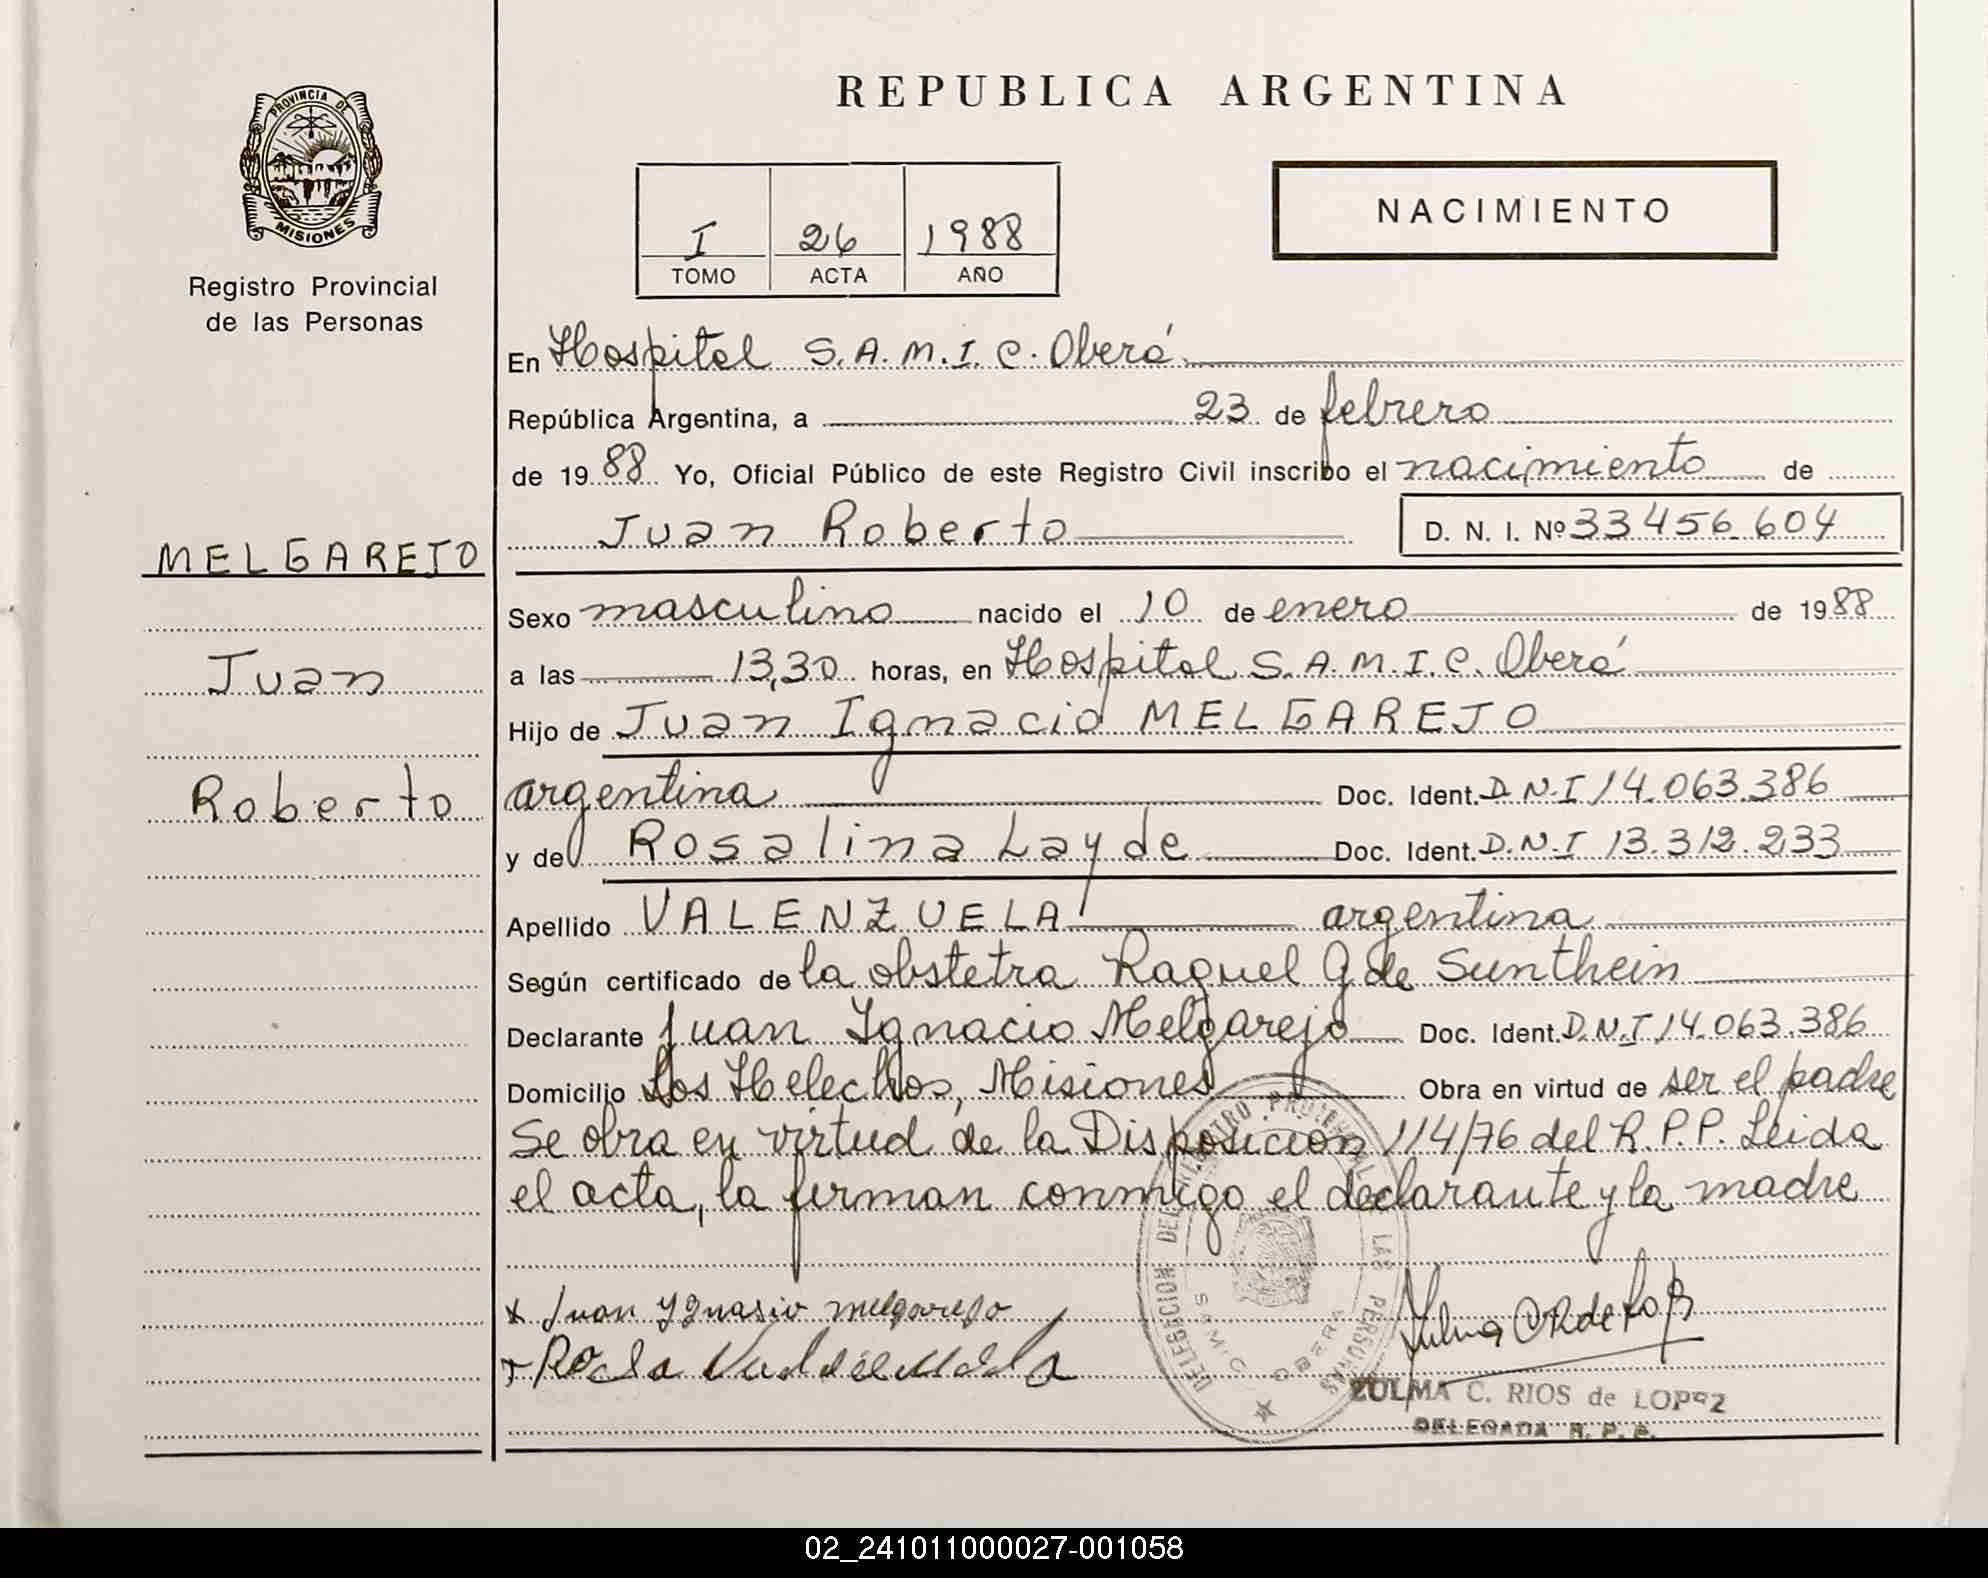 REPUBLICA ARGENTINA
PROVINCIA DE
MISIONES
Registro Provincial
de las Personas
I 26 1988
TOMO ACTA AÑO
NACIMIENTO
En Hospital S.A.M.I.C. Oberá
República Argentina, a 23 de febrero
de 1988 Yo, Oficial Público de este Registro Civil inscribo el nacimiento de
Juan Roberto D. N. I. Nº 33456604
MELGAREJO
Juan
Roberto
Sexo masculino nacido el 10 de enero de 1988
a las 13,30 horas, en Hospital S.A.M.I.C. Oberá
Hijo de Juan Ignacio MELGAREJO
argentina Doc. Ident. D.N.I 14.063.386
y de Rosalina Layde Doc. Ident. D.N.I 13.312.233
Apellido VALENZUELA argentina
Según certificado de la obstetra Raquel G de Sunthein
Declarante Juan Ignacio Melgarejo Doc. Ident. D.N.I 14.063.386
Domicilio Los Helechos, Misiones Obra en virtud de ser el padre
Se obra en virtud de la Disposicion 114/76 del R.P.P. Leida
el acta, la firman conmigo el declarante y la madre
x Juan Ygnasio melgarejo
DELEGACION DEL REGISTRO PROVINCIAL DE LAS PERSONAS
SAMIC OBERA
ZULMA C. RIOS de LOPEZ
DELEGADA R. P. P.
02_241011000027-001058